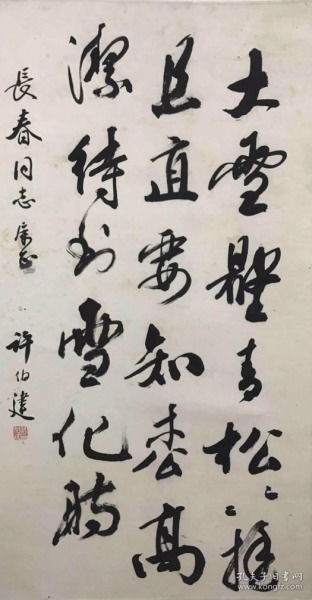 大雪壓青松、、挺
且直要知松高
潔待到雪化時
長春同志屬正
许伯建
孔夫子旧书网